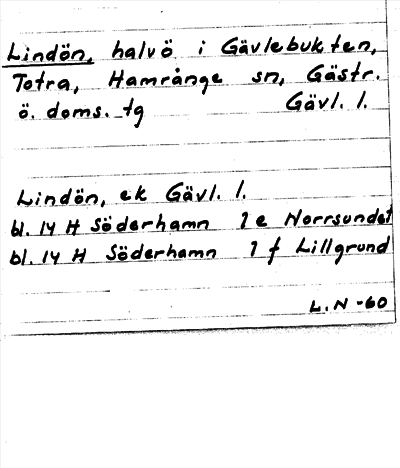 Lindön, halvö i Gävlebukten,
Totra, Hamrånge sn, Gästr.
ö. doms. tg Gävl. l.
Lindön, ek Gävl. l.
bl. 14 H Söderhamn 1 e Norrsundet
bl. 14 H Söderhamn 1 f Lillgrund
L.N -60